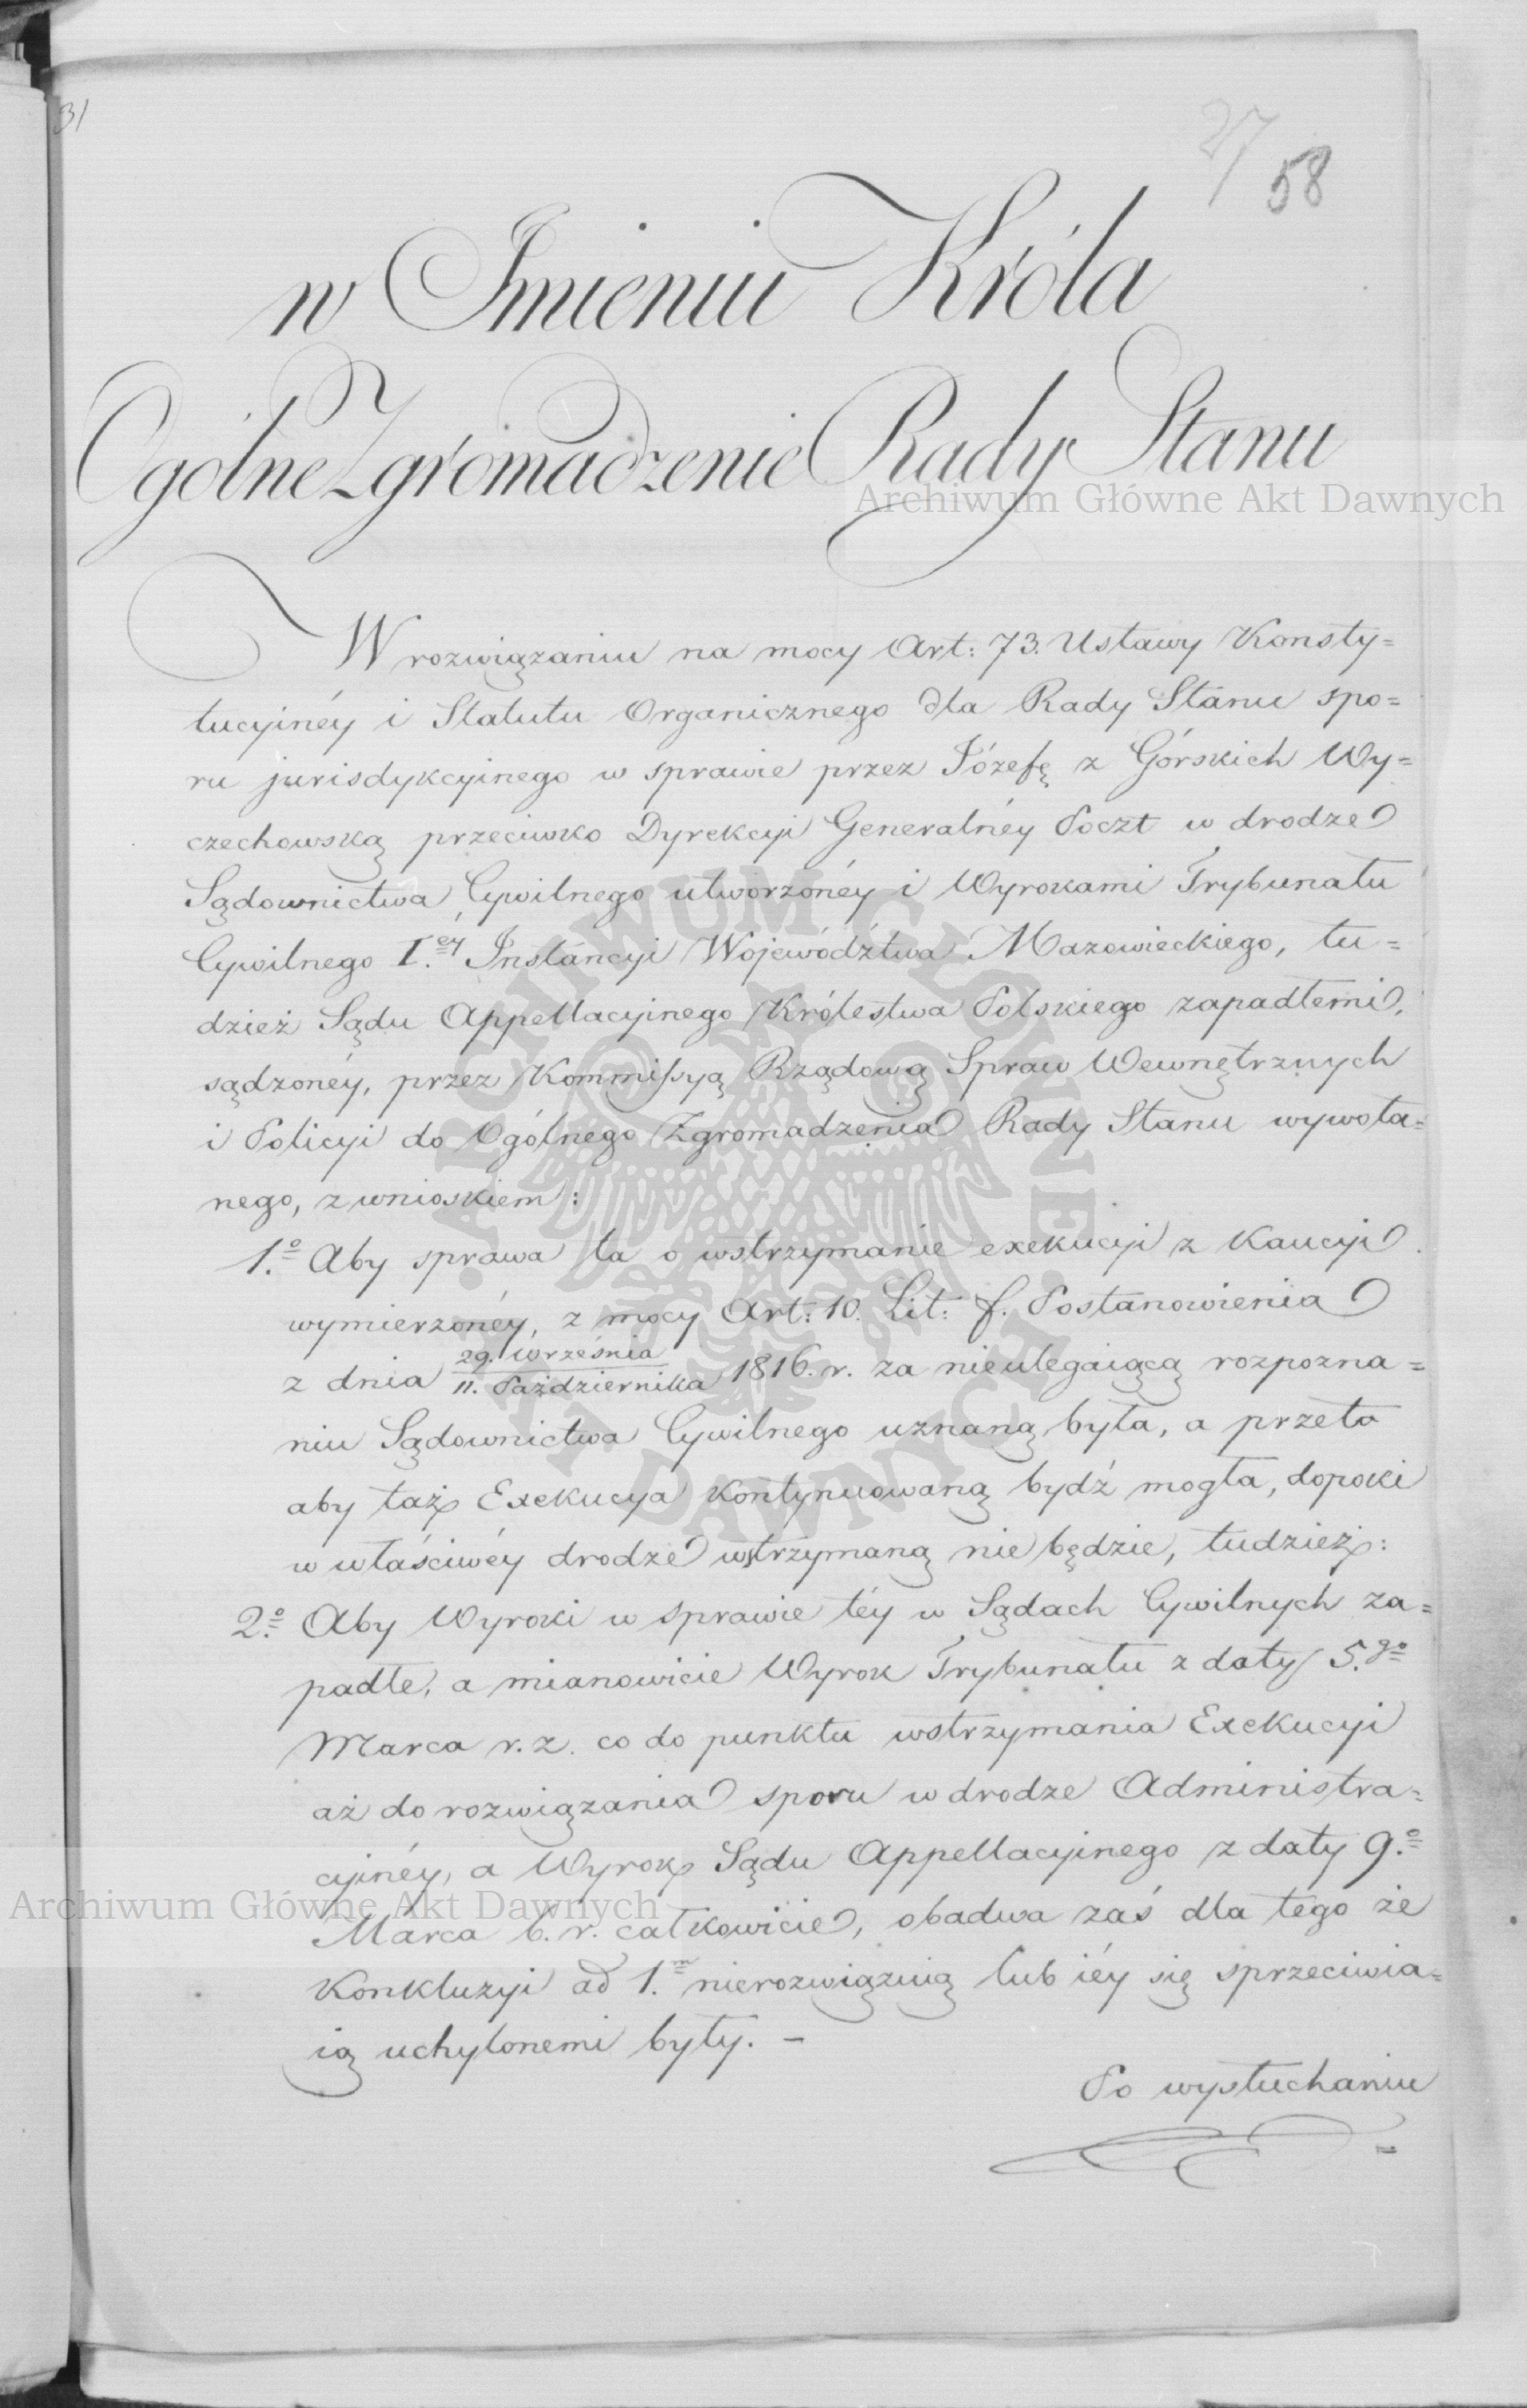 31
27
58
w Imieniu Króla
Ogólne Zgromadzenie Rady Stanu
W rozwiązaniu na mocy Art: 73. Ustawy Konsty=
tucyinéy i Statutu Organicznego dla Rady Stanu spo=
ru jurisdykcyinego w sprawie przez Józefę z Górskich Wy=
czechowską przeciwko Dyrekcyi Generalnéy Poczt w drodze
Sądownictwa Cywilnego utworzonéy i Wyrokami Trybunału
Cywilnego I.éy Instancyi Województwa Mazowieckiego, tu=
dzież Sądu Appellacyinego Królestwa Polskiego zapadłemi,
sądzonéy, przez Kommissyą Rządową Spraw Wewnętrznych
i Policyi do Ogólnego Zgromadzenia Rady Stanu wywoła=
nego, z wnioskiem:
1.o Aby sprawa ta o wstrzymanie exekucyi z Kaucyi
wymierzonéy, z mocy Art: 10. Lit: f. Postanowienia
z dnia 29. Września / 11. Października 1816. r. za nieulegaiącą rozpozna=
niu Sądownictwa Cywilnego uznaną była, a przeto
aby taż Exekucya kontynuowaną bydź mogła, dopoki
w właściwéy drodze wstrzymaną nie będzie, tudzież:
2.o Aby Wyroki w sprawie téy w Sądach Cywilnych za=
padłe, a mianowicie Wyrok Trybunału z daty 5.go
Marca r. z. co do punktu wstrzymania Exekucyi
aż do rozwiązania sporu w drodze Administra=
cyinéy, a Wyrok Sądu Appellacyinego z daty 9.o
Marca b. r. całkowicie, obadwa zaś dla tego że
Konkluzyi ad 1.m nierozwiązuią lub iéy się sprzeciwia=
ią uchylonemi były. –
Po wysłuchaniu
=
Archiwum Główne Akt Dawnych
ARCHIWUM GŁÓWNE AKT DAWNYCH
Archiwum Główne Akt Dawnych